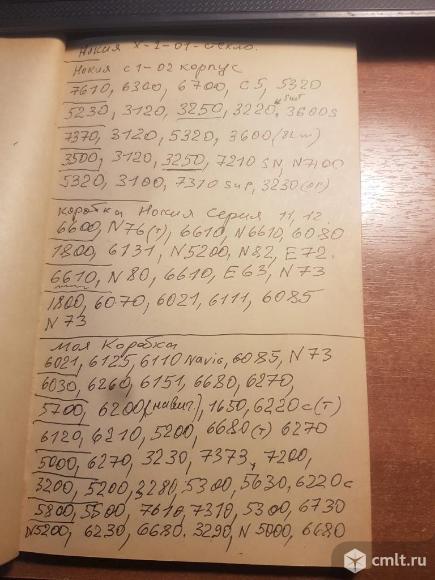 Нокия X-2-01-стекло.
Нокия с1-02 корпус
7610, 6300, 6700, C5, 5320
5230, 3120, 3250, 3220, 3600s
7370, 3120, 5320, 3600
3500, 3120, 3250, 7210 SN, N7100
5320, 3100, 7310 sup, 3230(ор)
Коробки Нокия Серия 11, 12.
6600, N76(т), 6610, N6610, 6080
1800, 6131, N5200, N82, E72.
6610, N80, 6610, E63, N73
1800, 6070, 6021, 6111, 6085
N73
Моя Коробки
6021, 6125, 6110 Navig, 6085, N73
6030, 6260, 6151, 6680, 6270,
5700, 6200(навиг.), 1650, 6220c(т)
6120, 6210, 5200, 6680(т) 6270
5000, 6270, 3230, 7373, 7200,
3200, 5200, 3280, 5300, 5630, 6220c
5800, 5500, 7610, 7310, 5300, 6730
N5200, 6230, 6680, 3290, N5000, 6680
cmlt.ru